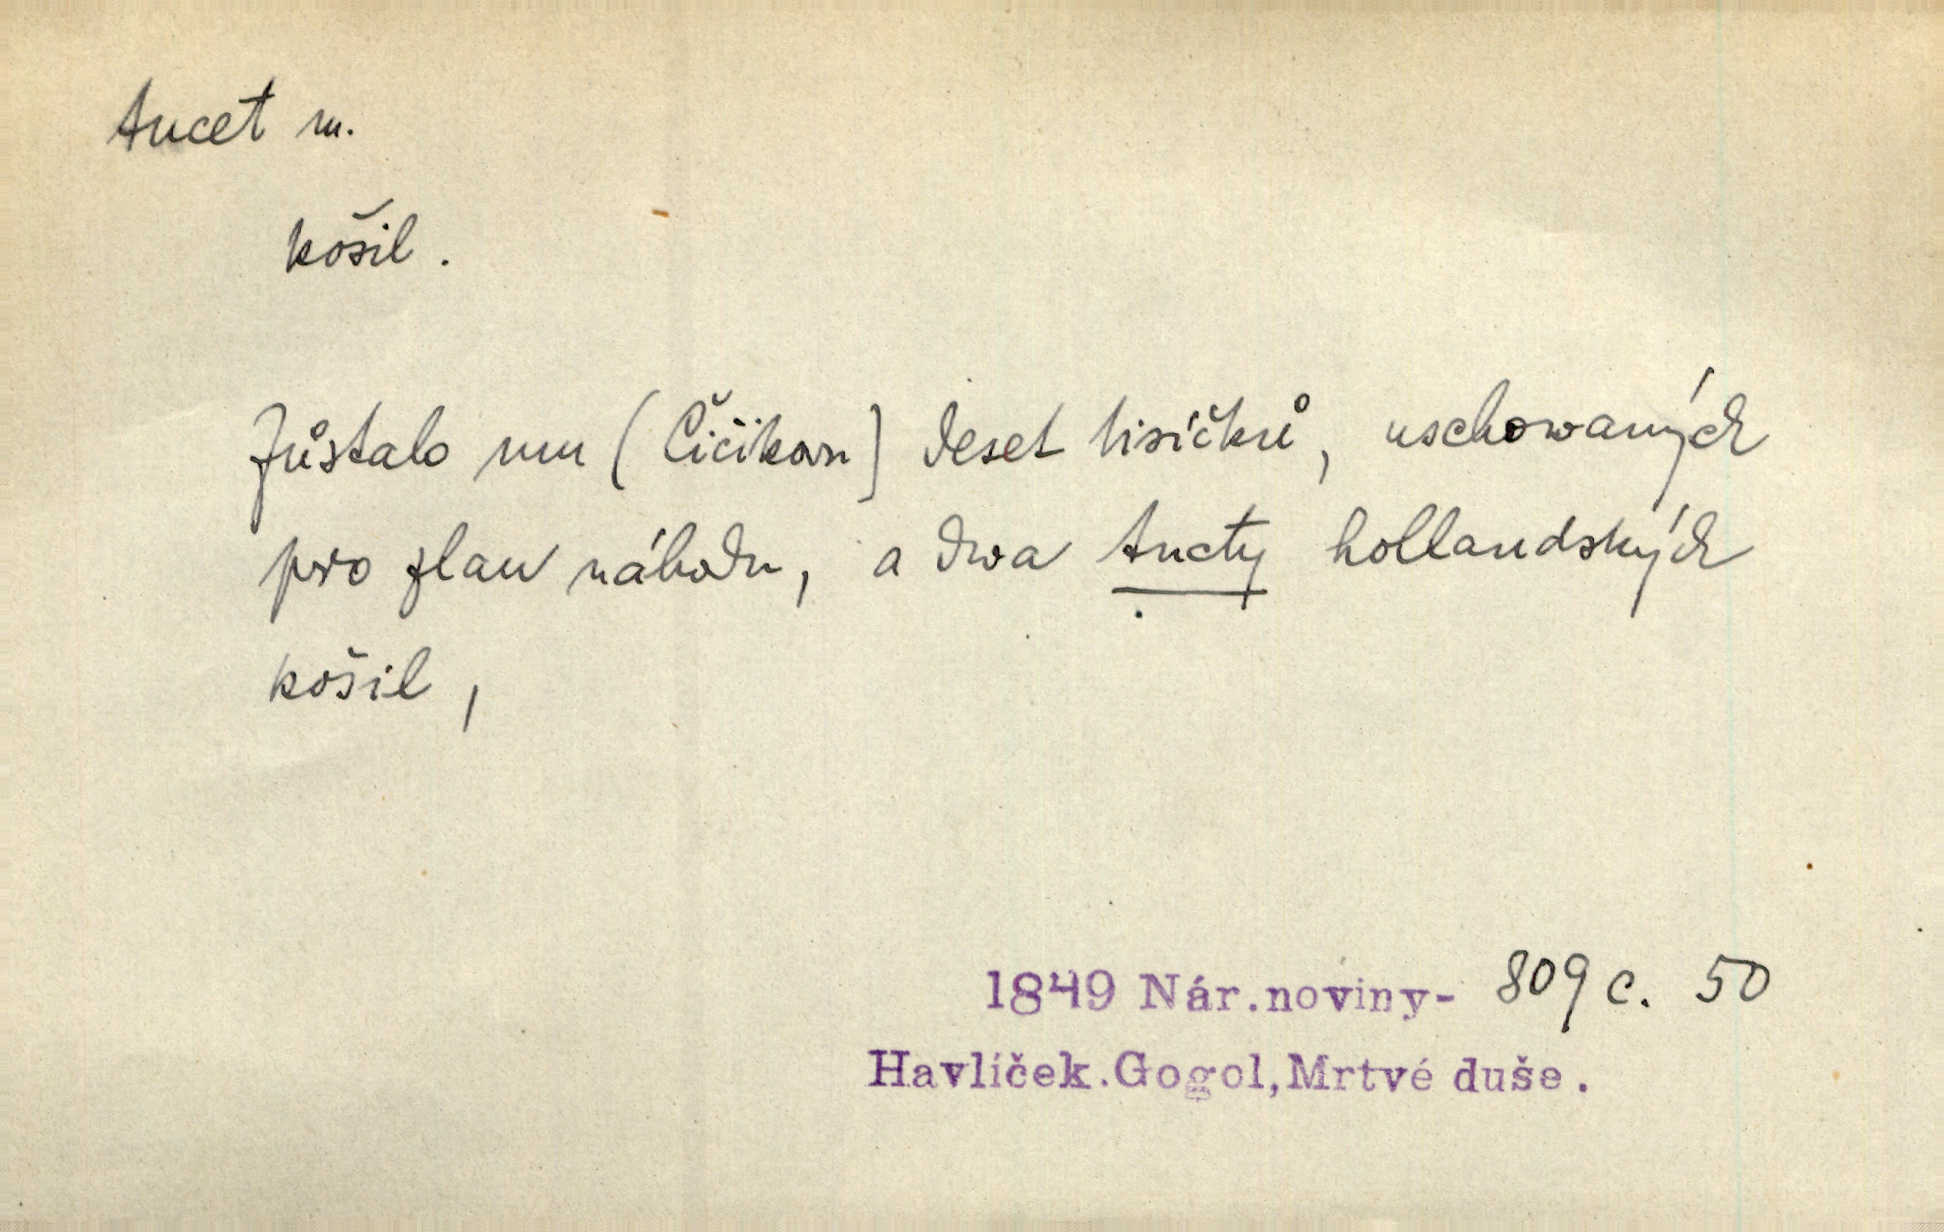 tucet m.
košil.
Zůstalo mu (Čičikov) deset tisíčků, uschowaných
pro zlau náhodu, a dwa tucty hollandských
košil,
1849 Nár.noviny- 809 c. 50
Havlíček.Gogol,Mrtvé duše.